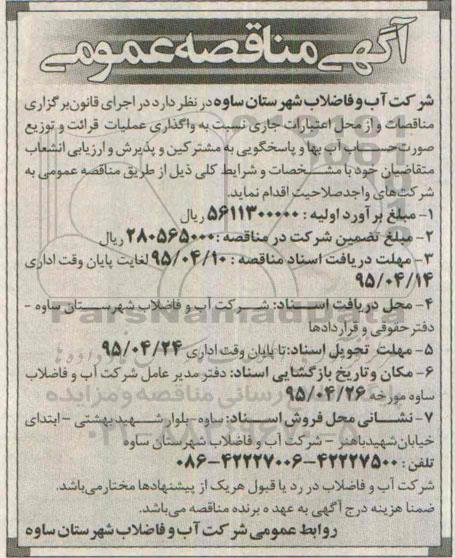 آگهی مناقصه عمومی
شرکت آب و فاضلاب شهرستان ساوه در نظر دارد در اجرای قانون برگزاری
مناقصات و از محل اعتبارات جاری نسبت به واگذاری عملیات قرائت و توزیع
صورتحساب آب بها و پاسخگویی به مشترکین و پذیرش و ارزیابی انشعاب
متقاضیان خود با مشخصات و شرایط کلی ذیل از طریق مناقصه عمومی به
شرکت‌های واجد صلاحیت اقدام نماید.
۱- مبلغ برآورد اولیه : ۵۶۱۱۳۰۰۰۰۰ ریال
۲- مبلغ تضمین شرکت در مناقصه : ۲۸۰۵۶۵۰۰۰ ریال
۳- مهلت دریافت اسناد مناقصه : ۹۵/۰۴/۱۰ لغایت پایان وقت اداری
۹۵/۰۴/۱۴
۴- محل دریافت اسناد: شرکت آب و فاضلاب شهرستان ساوه –
دفتر حقوقی و قراردادها
۵- مهلت تحویل اسناد: تا پایان وقت اداری ۹۵/۰۴/۲۴
۶- مکان و تاریخ بازگشایی اسناد: دفتر مدیر عامل شرکت آب و فاضلاب
ساوه مورخه ۹۵/۰۴/۲۶
۷- نشانی محل فروش اسناد: ساوه-بلوار شهید بهشتی – ابتدای
خیابان شهید باهنر – شرکت آب و فاضلاب شهرستان ساوه
تلفن : ۴۲۲۲۷۵۰۰-۰۸۶-۴۲۲۲۷۰۰۶
شرکت آب و فاضلاب در رد یا قبول هریک از پیشنهادها مختار می‌باشد.
ضمنا هزینه درج آگهی به عهده برنده مناقصه می‌باشد.
روابط عمومی شرکت آب و فاضلاب شهرستان ساوه
ParsNamadData